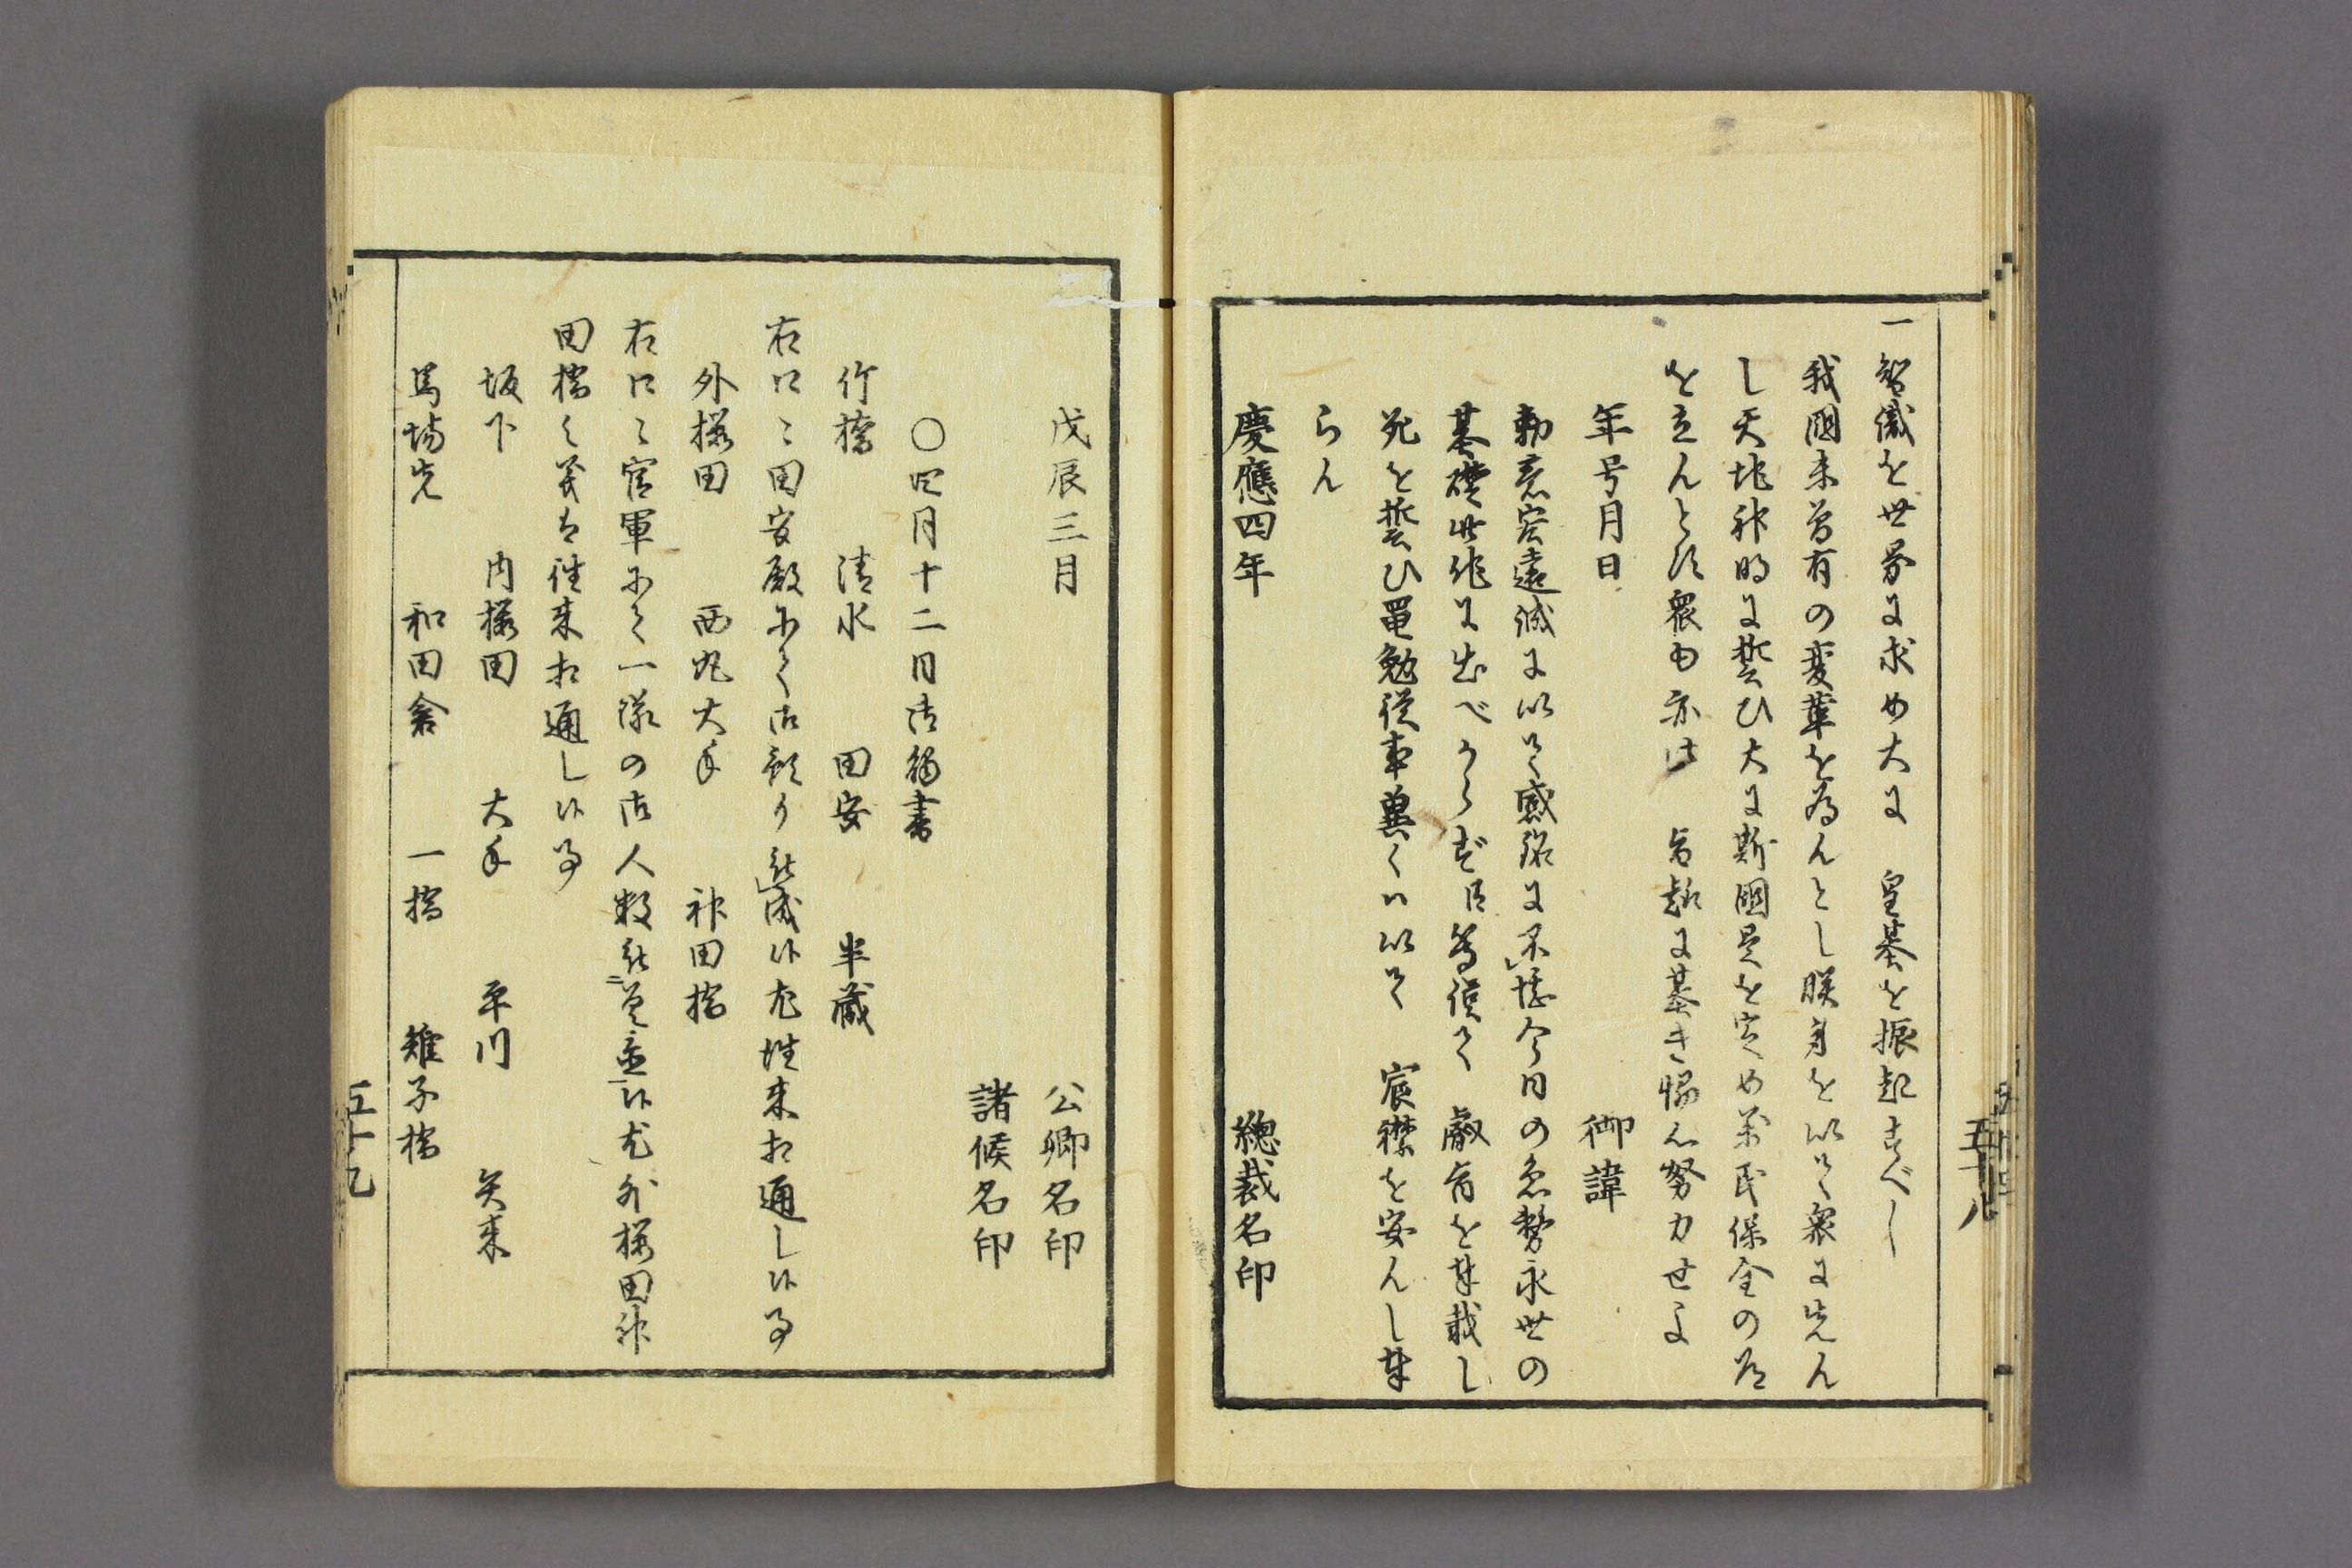 一智識を世界に求め大に　皇基を振起すべし
我國未曾有の変革を為んとし朕躬を以て衆に先ん
し天地神明に誓ひ大に斯國是を定め萬民保全の道
を立んとす衆も亦此　旨趣に基き協心努力せよ
年号月日　御諱
勅意宏遠誠に以て感銘に不堪今日の急務永世の
基礎此他に出べからず臣等謹て　叡旨を奉戴し
死を誓ひ黽勉從事冀くハ以て　宸襟を安んし奉
らん
慶應四年　總裁名印
五十八
戊辰三月　公卿名印
諸侯名印
○四月十二日御觸書
竹橋　清水　田安　半蔵
右口々田安殿にて御預り被成候尤往来相通し候事
外櫻田　西丸大手　神田橋
右口々官軍にて一隊の御人数被差置候尤外櫻田神
田橋之義は往来相通し候事
坂下　内櫻田　大手　平川　矢来
馬場先　和田倉　一橋　雉子橋
五十九